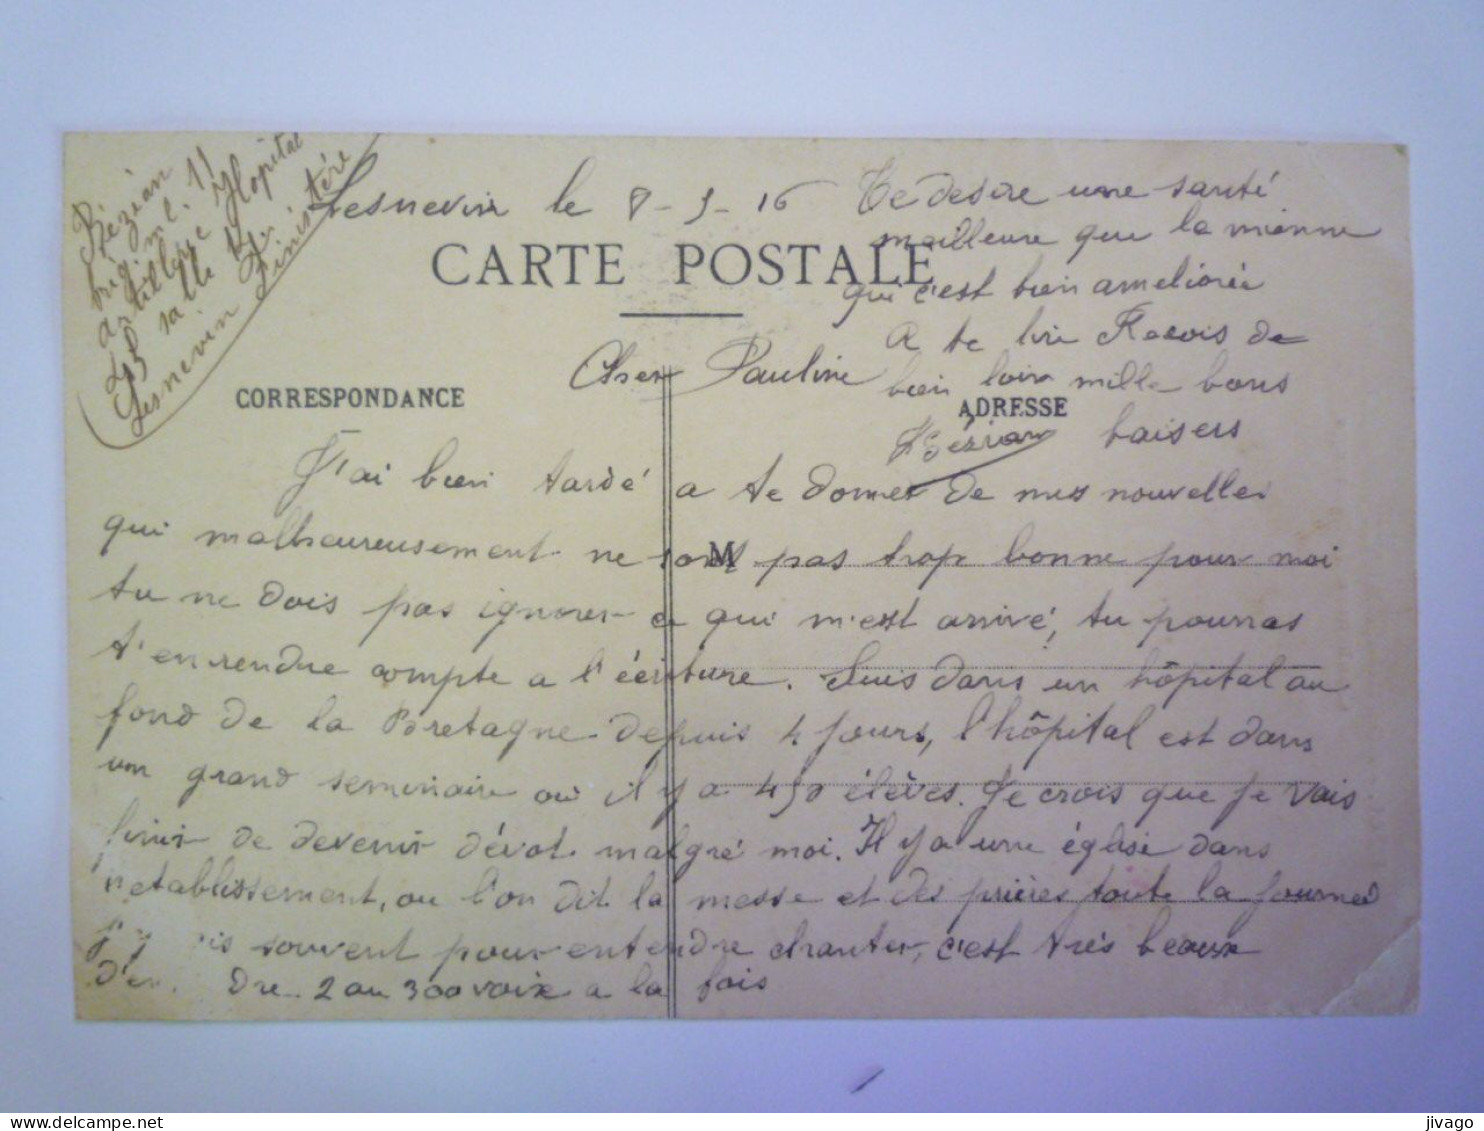 Bézian
brigt ml. 11
artillerie Hopital
45 salle 14
Lesnevin Finistére
Lesnevin le 8-5-16
CARTE POSTALE
Cher Pauline
CORRESPONDANCE
J'ai bien tardé a te donner de mes nouvelles
qui malheureusement ne sont pas trop bonne pour moi
tu ne dois pas ignorer ce qui m'est arrivé, tu pourras
t'en rendre compte a l'écriture. Suis dans un hôpital au
fond de la Bretagne depuis 4 jours, l'hôpital est dans
un grand seminaire ou il y a 450 élèves. Je crois que je vais
finir de devenir dévot malgré moi. Il y a une église dans
l'etablissement, ou l'on dit la messe et des prières toute la journeé
souvent pour entendre chanter, c'est très beaux
2 ou 300 voix a la fois
Te desire une santé
meilleure que la mienne
qui c'est bien ameliorée
A te lire Recois de
bien loin mille bons
ADRESSE
baisers
Bézian
M
jivago